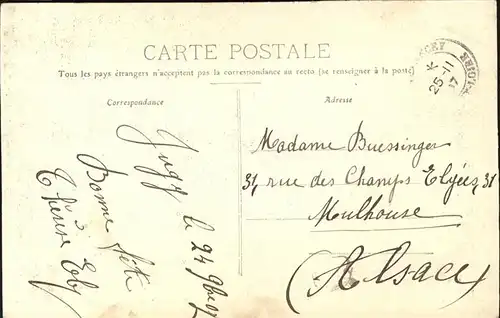 CARTE POSTALE
Tous les pays étrangers n'acceptent pas la correspondance au recto (se renseigner à la poste)
Correspondance
Adresse
Jugy le 24 9bre 07
Bonne fête
Thérèse Eby
Madame Buessinger
31, rue des Champs Elyées, 31
Mulhouse
(Alsace)
K
25-11